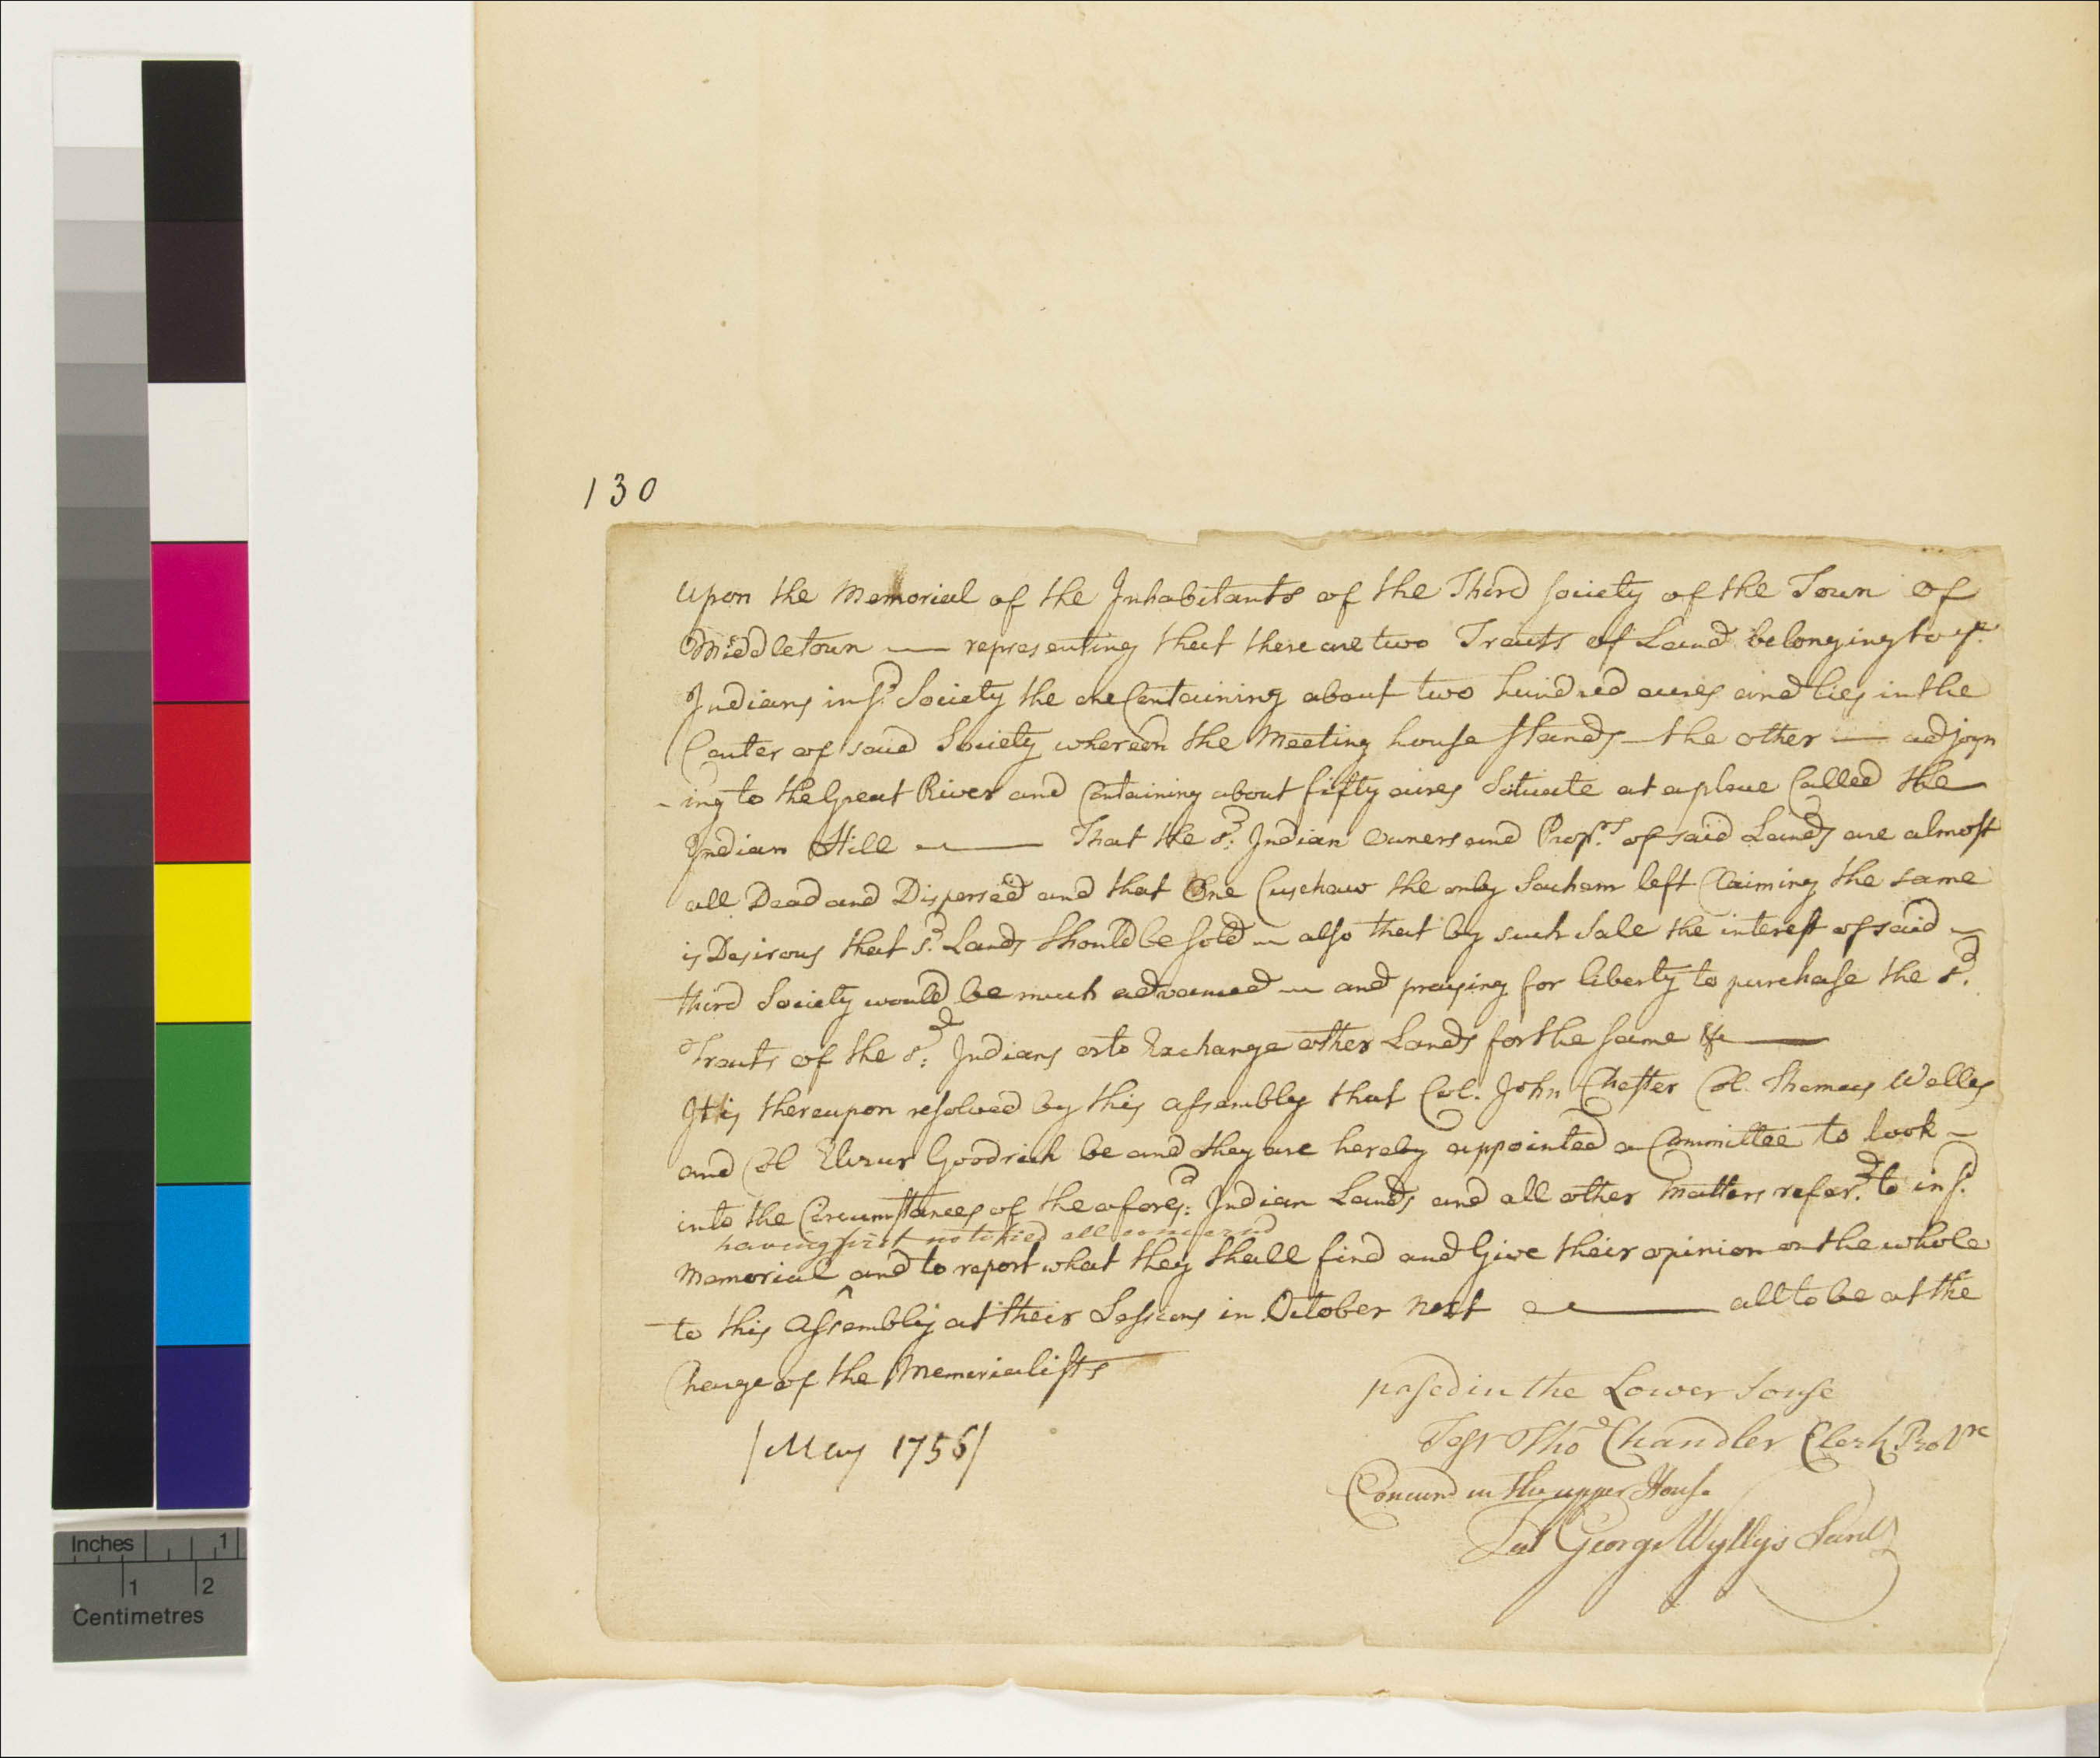 130
Upon the Memorial of the Inhabitants of the Third Society of the Town of
Middletown — representing that there are two Tracts of Land belonging to ye
Indians in sd. Society the one Containing about two hundred acres and lies in the
Center of said Society whereon the Meeting house stands — the other — adjoyn
-ing to the Great River and Containing about fifty acres Situate at a place Called the
Indian Hill — That the sd: Indian Owners and Proprs. of said Lands are almost
all Dead and Dispersed and that One Cuschaw the only Sachem left Claiming the same
is Desirous that sd. Lands Should be sold — also that by such Sale the interest of said —
third Society would be much advanced — and praying for liberty to purchase the sd.
Tracts of the sd: Indians or to Exchange other Lands for the same &c —
It is thereupon resolved by this assembly that Col. John Chester Col. Thomas Welles
and Col Elizur Goodrich be and they are hereby appointed a Committee to look —
into the Circumstances of the aforesd: Indian Lands and all other Matters referd. to in sd.
having first notified all concernd
Memorial ^ and to report what they shall find and Give their opinion on the whole
to this Assembly at their Sessions in October next — all to be at the
Charge of the Memorialists
/May 1756/
pased in the Lower House
Test Thos Chandler Clerk
Concurd in the upper House
Test George Wyllys Secret
Inches 1
1 2
Centimetres